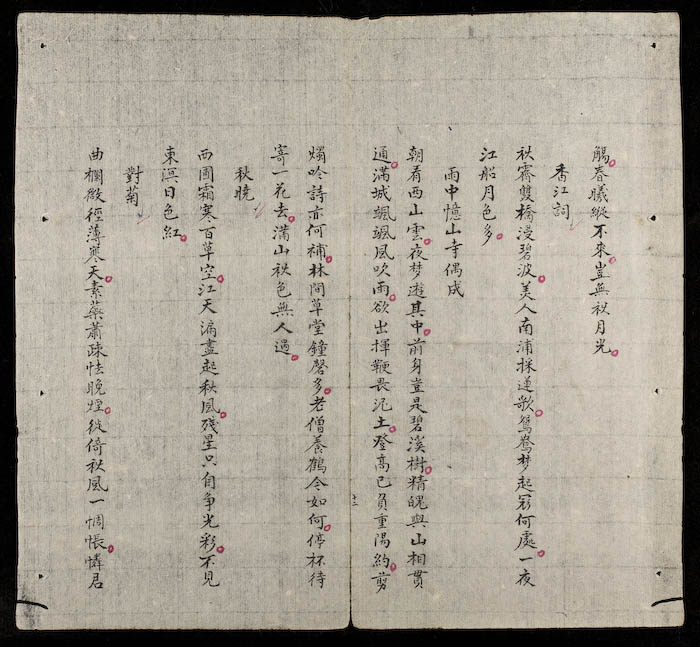 觴春曦縱不來豈無秋月光
香江詞
秋霽雙橋浸碧波美人南浦採蓮歌鴛鴦梦起窮何處一夜
江船月色多
雨中憶山寺偶成
朝看西山雲夜梦遊其中前身豈是碧溪樹精魄與山相貫
通滿城颯颯風吹雨欲出揮鞭畏泥土登高已負重陽約剪
燭吟詩亦何補林間草堂鐘磬多老僧養鶴今如何停杯待
寄一花去滿山秋色無人過
秋曉
西園霜寒百草空江天漏盡起秋風殘星只自争光彩不見
東溟日色紅
對菊
曲欄微徑薄寒天素蘂蕭疎怯晚煙徙倚秋風一惆悵憐君